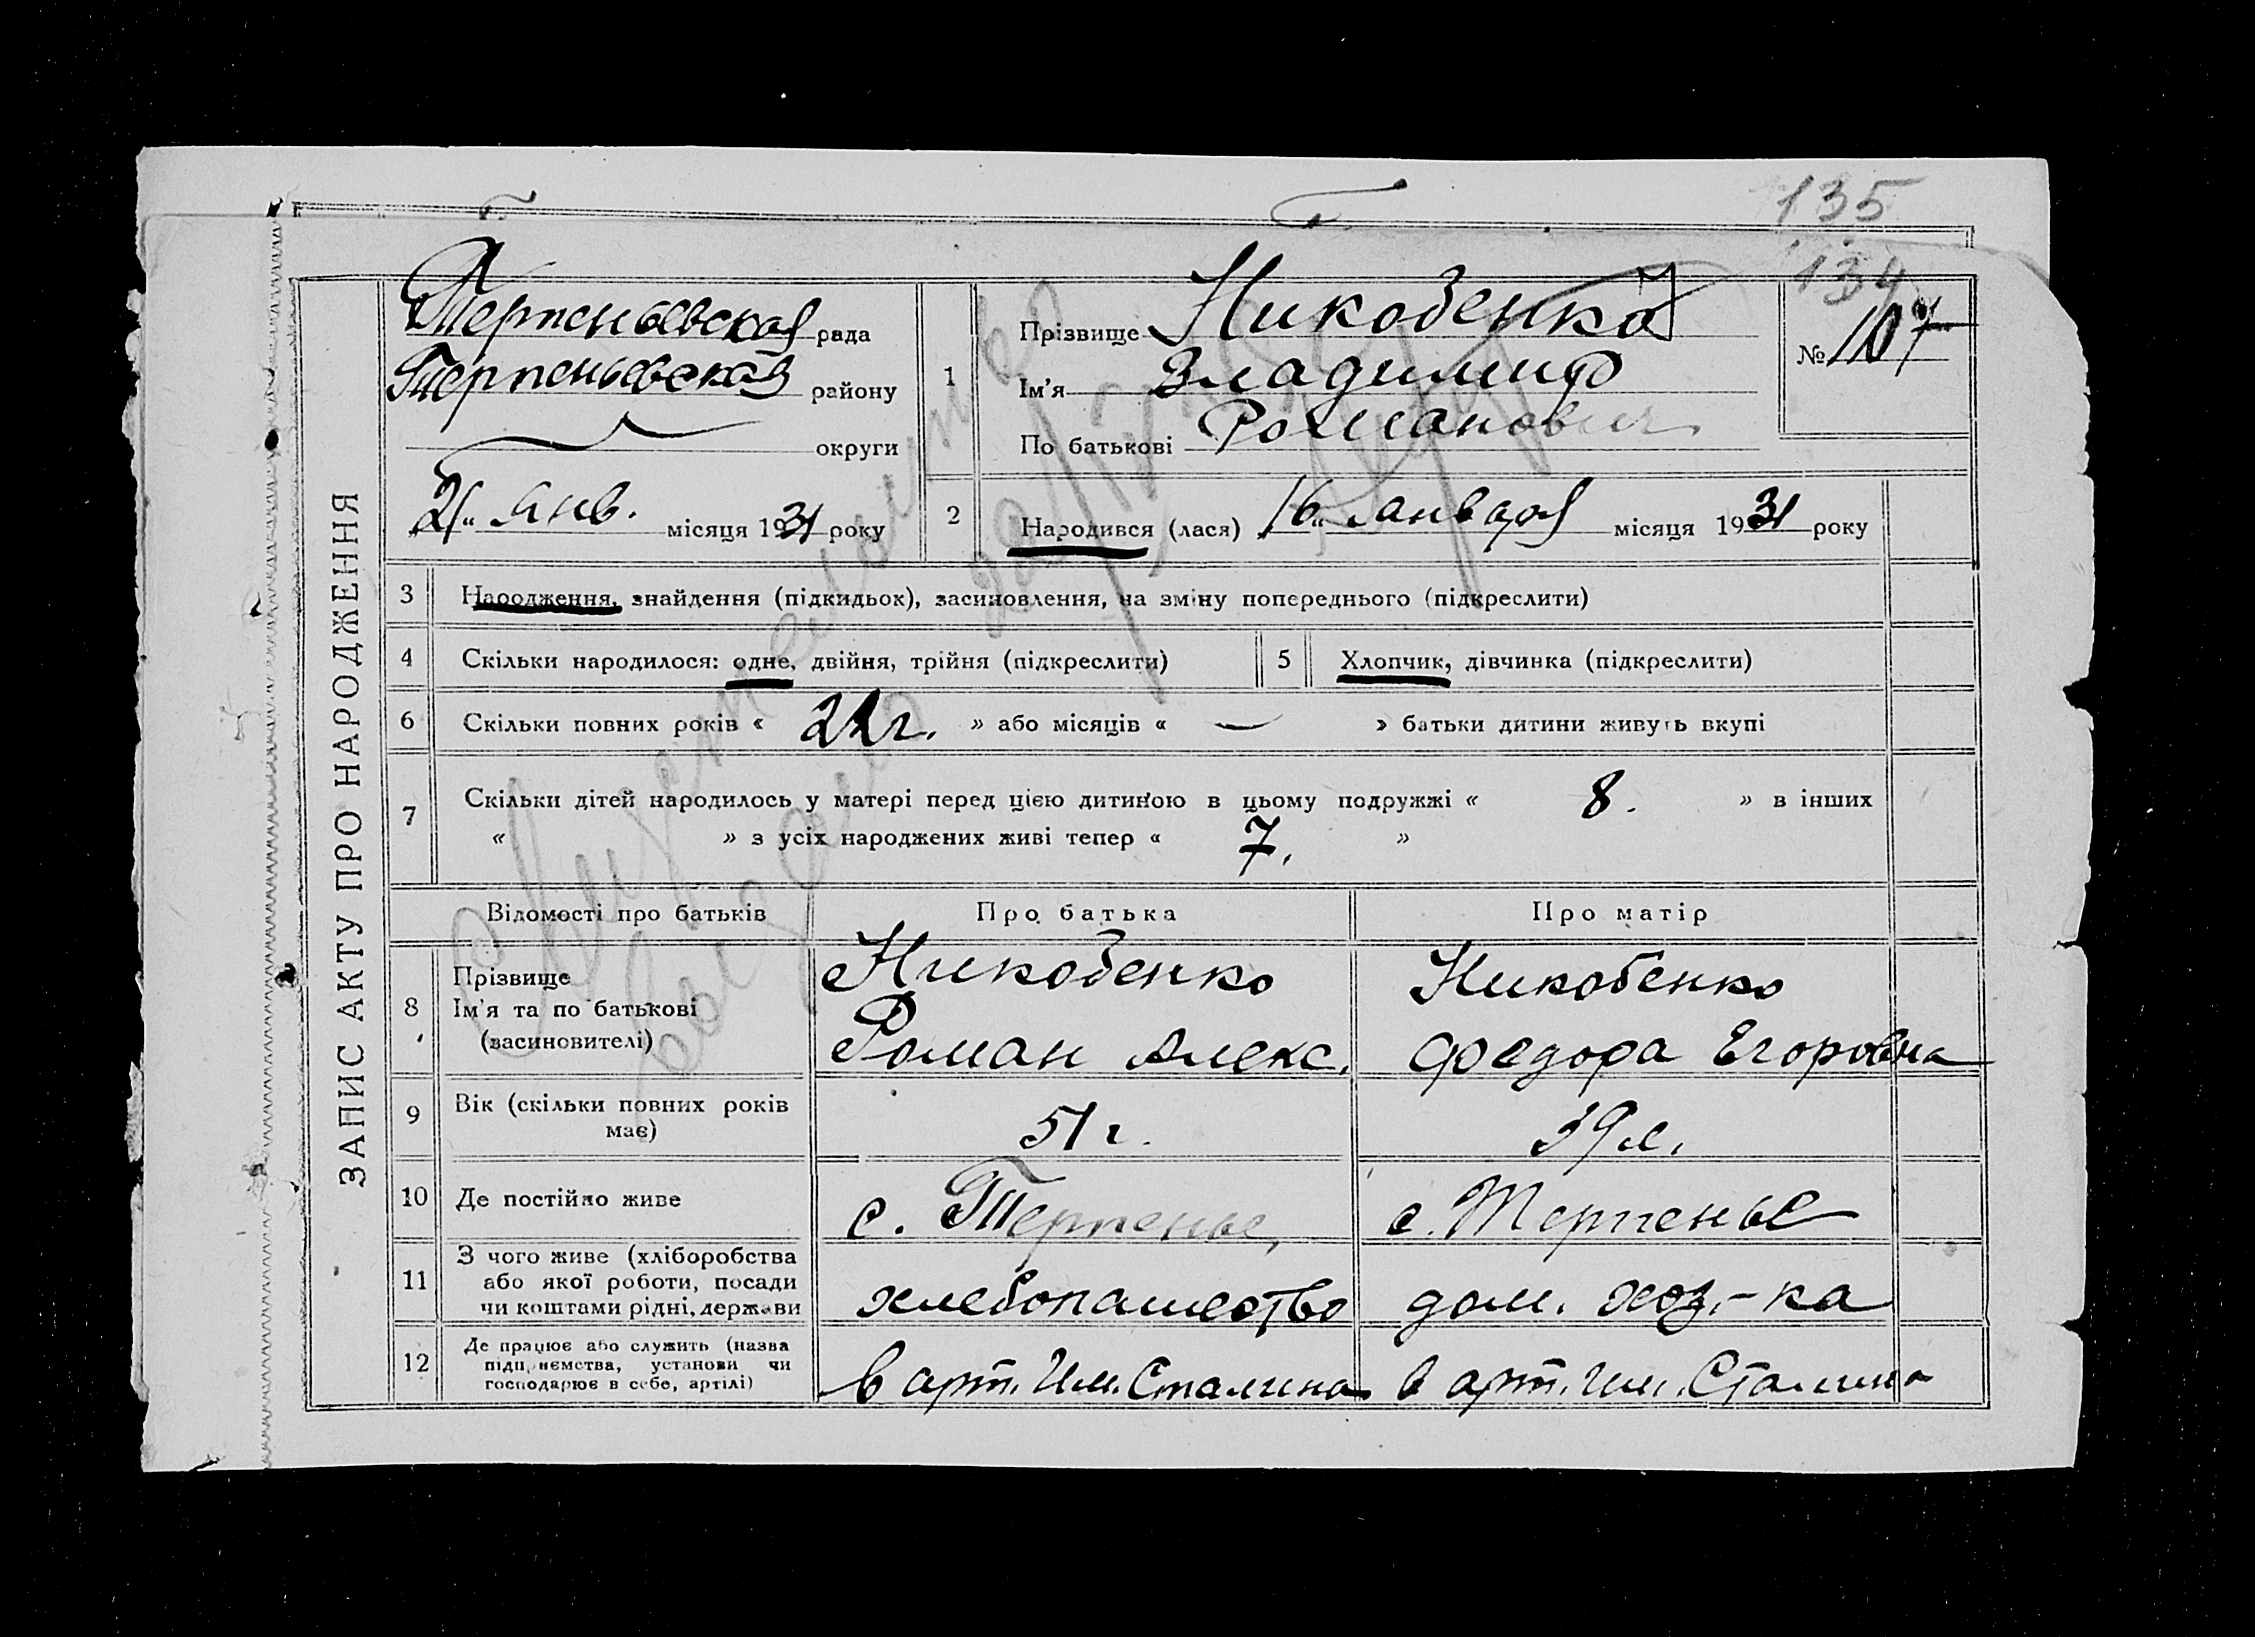 135
134
ЗАПИС АКТУ ПРО НАРОДЖЕННЯ
Терпеньевская рада
Терпеньевская району
округи
21 " янв. місяця 1931 року
1
Прізвище Никобенко
Ім'я Владимир
По батькові Романович
№ 107
2
Народився (лася) 16 " января місяця 1931 року
3 Народження, знайдення (підкидьок), засиновлення, на зміну попереднього (підкреслити)
4 Скільки народилося: одне, двійня, трійня (підкреслити)
5 Хлопчик, дівчинка (підкреслити)
6 Скільки повних років « г. » або місяців « — » батьки дитини живуть вкупі
7 Скільки дітей народилось у матері перед цією дитиною в цьому подружжі « 8. » в інших
« » з усіх народжених живі тепер « 7. »
Відомості про батьків Про батька Про матір
8 Прізвище
Ім'я та по батькові
(васиновителі)
Никобенко
Роман Алекс.
Никобенко
Федора Егоровна
9 Вік (скільки повних років
має)
51 г.
39 л.
10 Де постійно живе
с. Терпенье,
с. Терпенье
11 З чого живе (хліборобства
або якої роботи, посади
чи коштами рідні, держави
хлебопашество
дом. хоз.-ка
12 Де працює або служить (назва
підприємства, установи чи
господарює в себе, артілі)
в арт. Им. Сталина
в арт. Им. Сталина